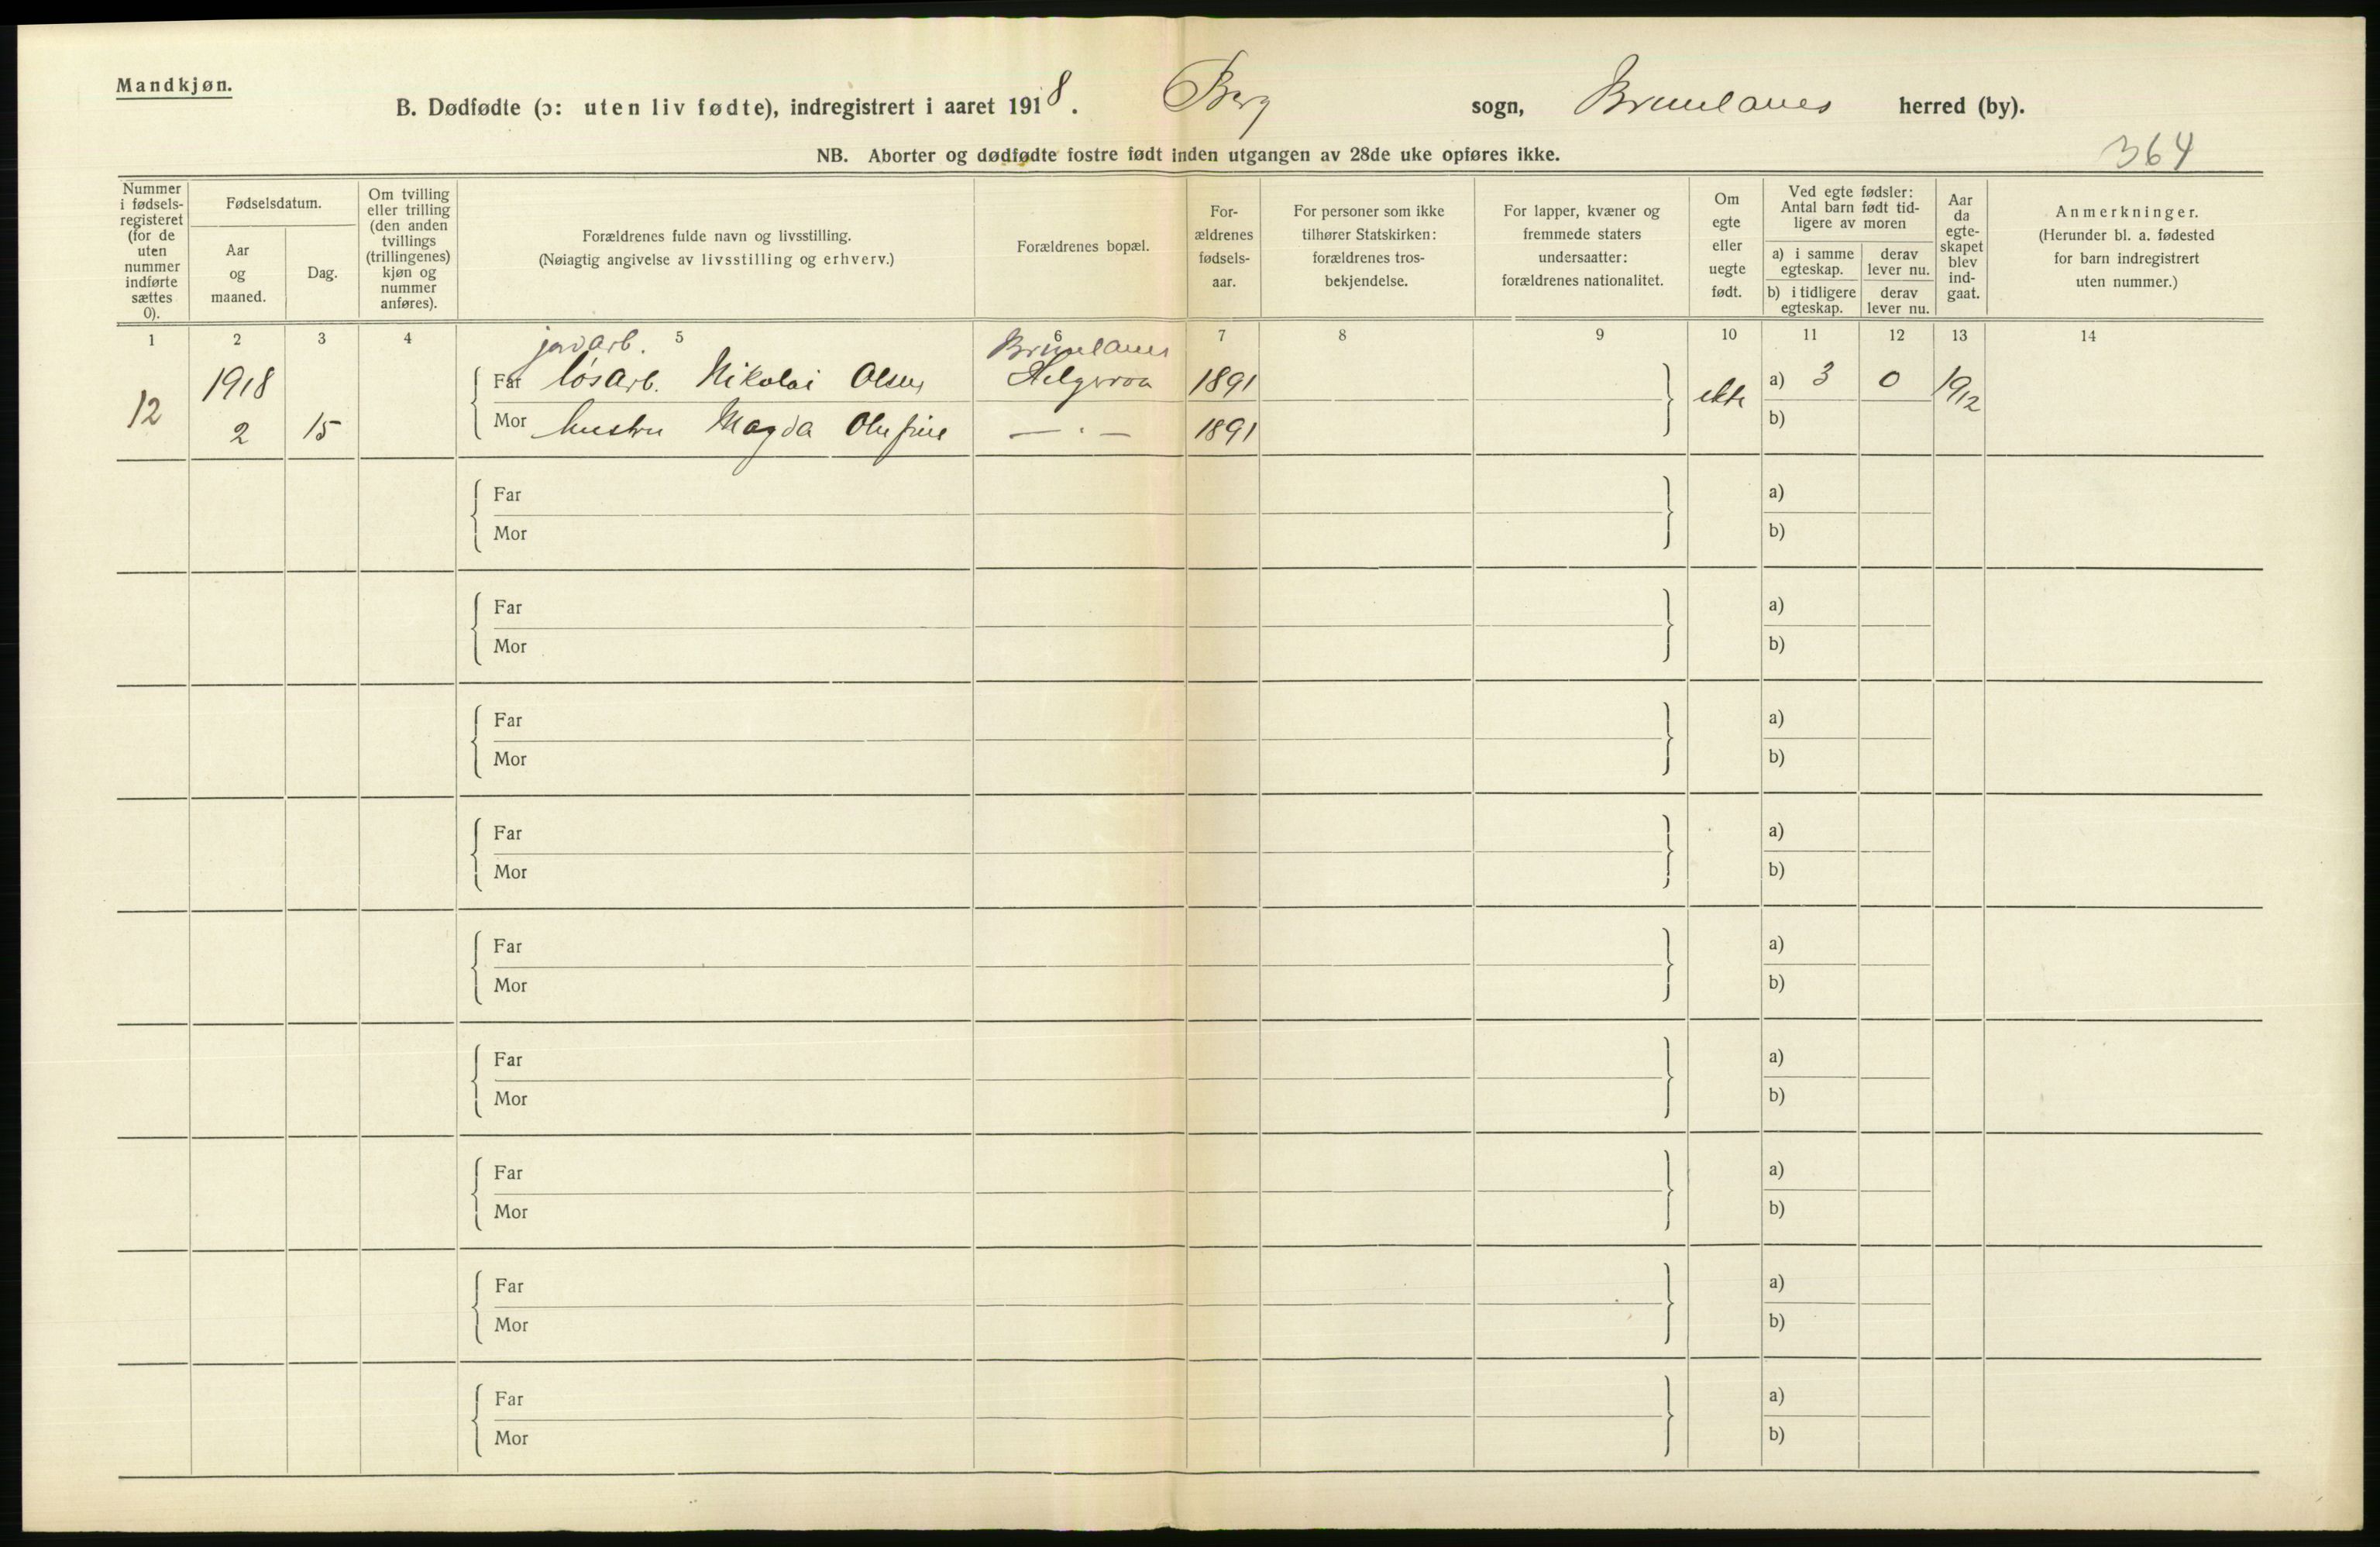 Mandkjøn.
B. Dødfødte (ɔ: uten liv fødte), indregistrert i aaret 1918. Berg sogn, Brunlanes herred (by).
NB. Aborter og dødfødte fostre født inden utgangen av 28de uke opføres ikke.
364
Nummer i fødsels-registeret (for de uten nummer indførte sættes 0).
Fødselsdatum.
Aar og maaned.
Dag.
Om tvilling eller trilling (den anden tvillings (trillingenes) kjøn og nummer anføres).
Forældrenes fulde navn og livsstilling.
(Nøiagtig angivelse av livsstilling og erhverv.)
Forældrenes bopæl.
For-ældrenes fødsels-aar.
For personer som ikke tilhører Statskirken: forældrenes tros-bekjendelse.
For lapper, kvæner og fremmede staters undersaatter: forældrenes nationalitet.
Om egte eller uegte født.
Ved egte fødsler: Antal barn født tid-ligere av moren
a) i samme egteskap.
derav lever nu.
b) i tidligere egteskap.
derav lever nu.
Aar da egte-skapet blev ind-gaat.
Anmerkninger.
(Herunder bl. a. fødested for barn indregistrert uten nummer.)
1 2 3 4 5 6 7 8 9 10 11 12 13 14
jordarb. Brunlanes
1918 Far løsarb. Nikolai Olsen Helgeroa 1891 a) 3 0 1912
12 ekte
2 15 Mor hustru Magda Olufine — . — 1891 b)
Far a)
Mor b)
Far a)
Mor b)
Far a)
Mor b)
Far a)
Mor b)
Far a)
Mor b)
Far a)
Mor b)
Far a)
Mor b)
Far a)
Mor b)
Far a)
Mor b)